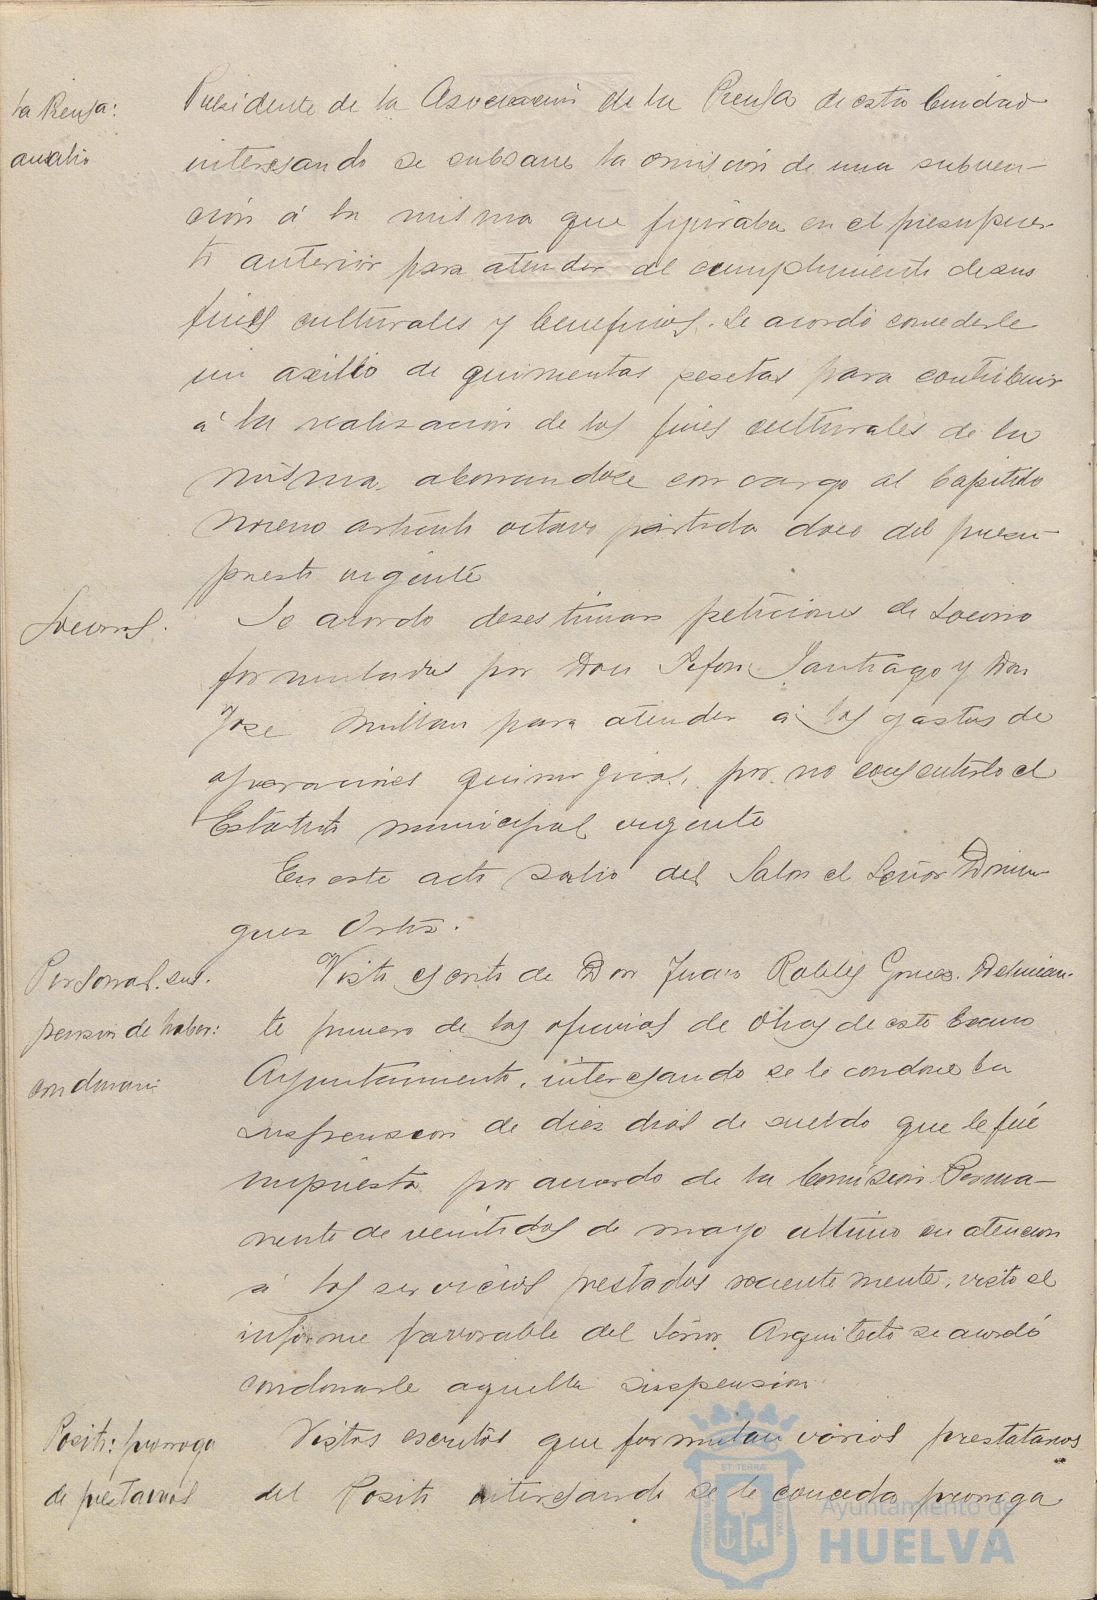 la Prensa:
auxilio
Presidente de la Asociacion de la Prensa de esta Ciudad
interesando se subsane la omisión de una subven-
ción á la misma que figuraba en el presupues-
to anterior para atender al cumplimiento de sus
fines culturales y beneficos. Se acordó concederle
un axilio de quinientas pesetas para contribuir
á la realizacion de los fines culturales de la
misma, abonandose con cargo al Capitulo
noveno articulo octavo partida doce del presu-
puesto vigente
Socorros.
Se acordo desestimar peticiones de socorro
formuladas por Don Santiago y Don
José Millan para atender á los gastos de
operaciones quirurgicas, por no consentirlo el
Estatuto municipal vigente
En este acto salio del Salon el Señor Domin-
guez Ortiz.
Personal. sus-
pension de haber:
condonacion
Visto escrito de Don Juan Robles Gomez. Delinean-
te primero de las oficinas de Obras de este Excmo
Ayuntamiento, interesando se le condone la
suspension de diez dias de sueldo que le fué
impuesta por acuerdo de la Comision Perma-
nente de veintidos de mayo ultimo en atencion
á los servicios prestados recientemente, visto el
informe favorable del Señor Arquitecto se acordó
condonarle aquella suspension
Posito: prorroga
de prestamos
Vistos escritos que formulan varios prestatarios
del Posito interesando se le conceda prorroga
ET TERRA
Ayuntamiento de
HUELVA